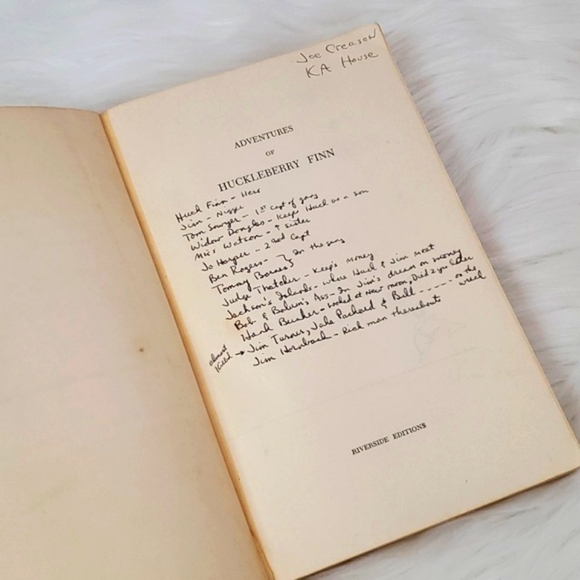 Joe Creason
KA House
ADVENTURES
OF
HUCKLEBERRY FINN
Huck Finn - Hero
Jim - Nigger
Tom Sawyer - 1st Capt of gang
Widow Douglas - Keeps Huck as a son
Miss Watson - " sister
Jo Harper - 2nd Capt
Ben Rogers - } In the gang
Tommy Barnes
Judge Thatcher - Keeps money
Jackson's Islands - where Huck & Jim meet
Bob & Balum's Ass - In Jim's dream on money
Hank Bunker - looked at New moon, Died 2 yrs later
almost Killed → Jim Turner, Jake Packard & Bill ------ on the wreck
Jim Hornback - Rich man
RIVERSIDE EDITIONS